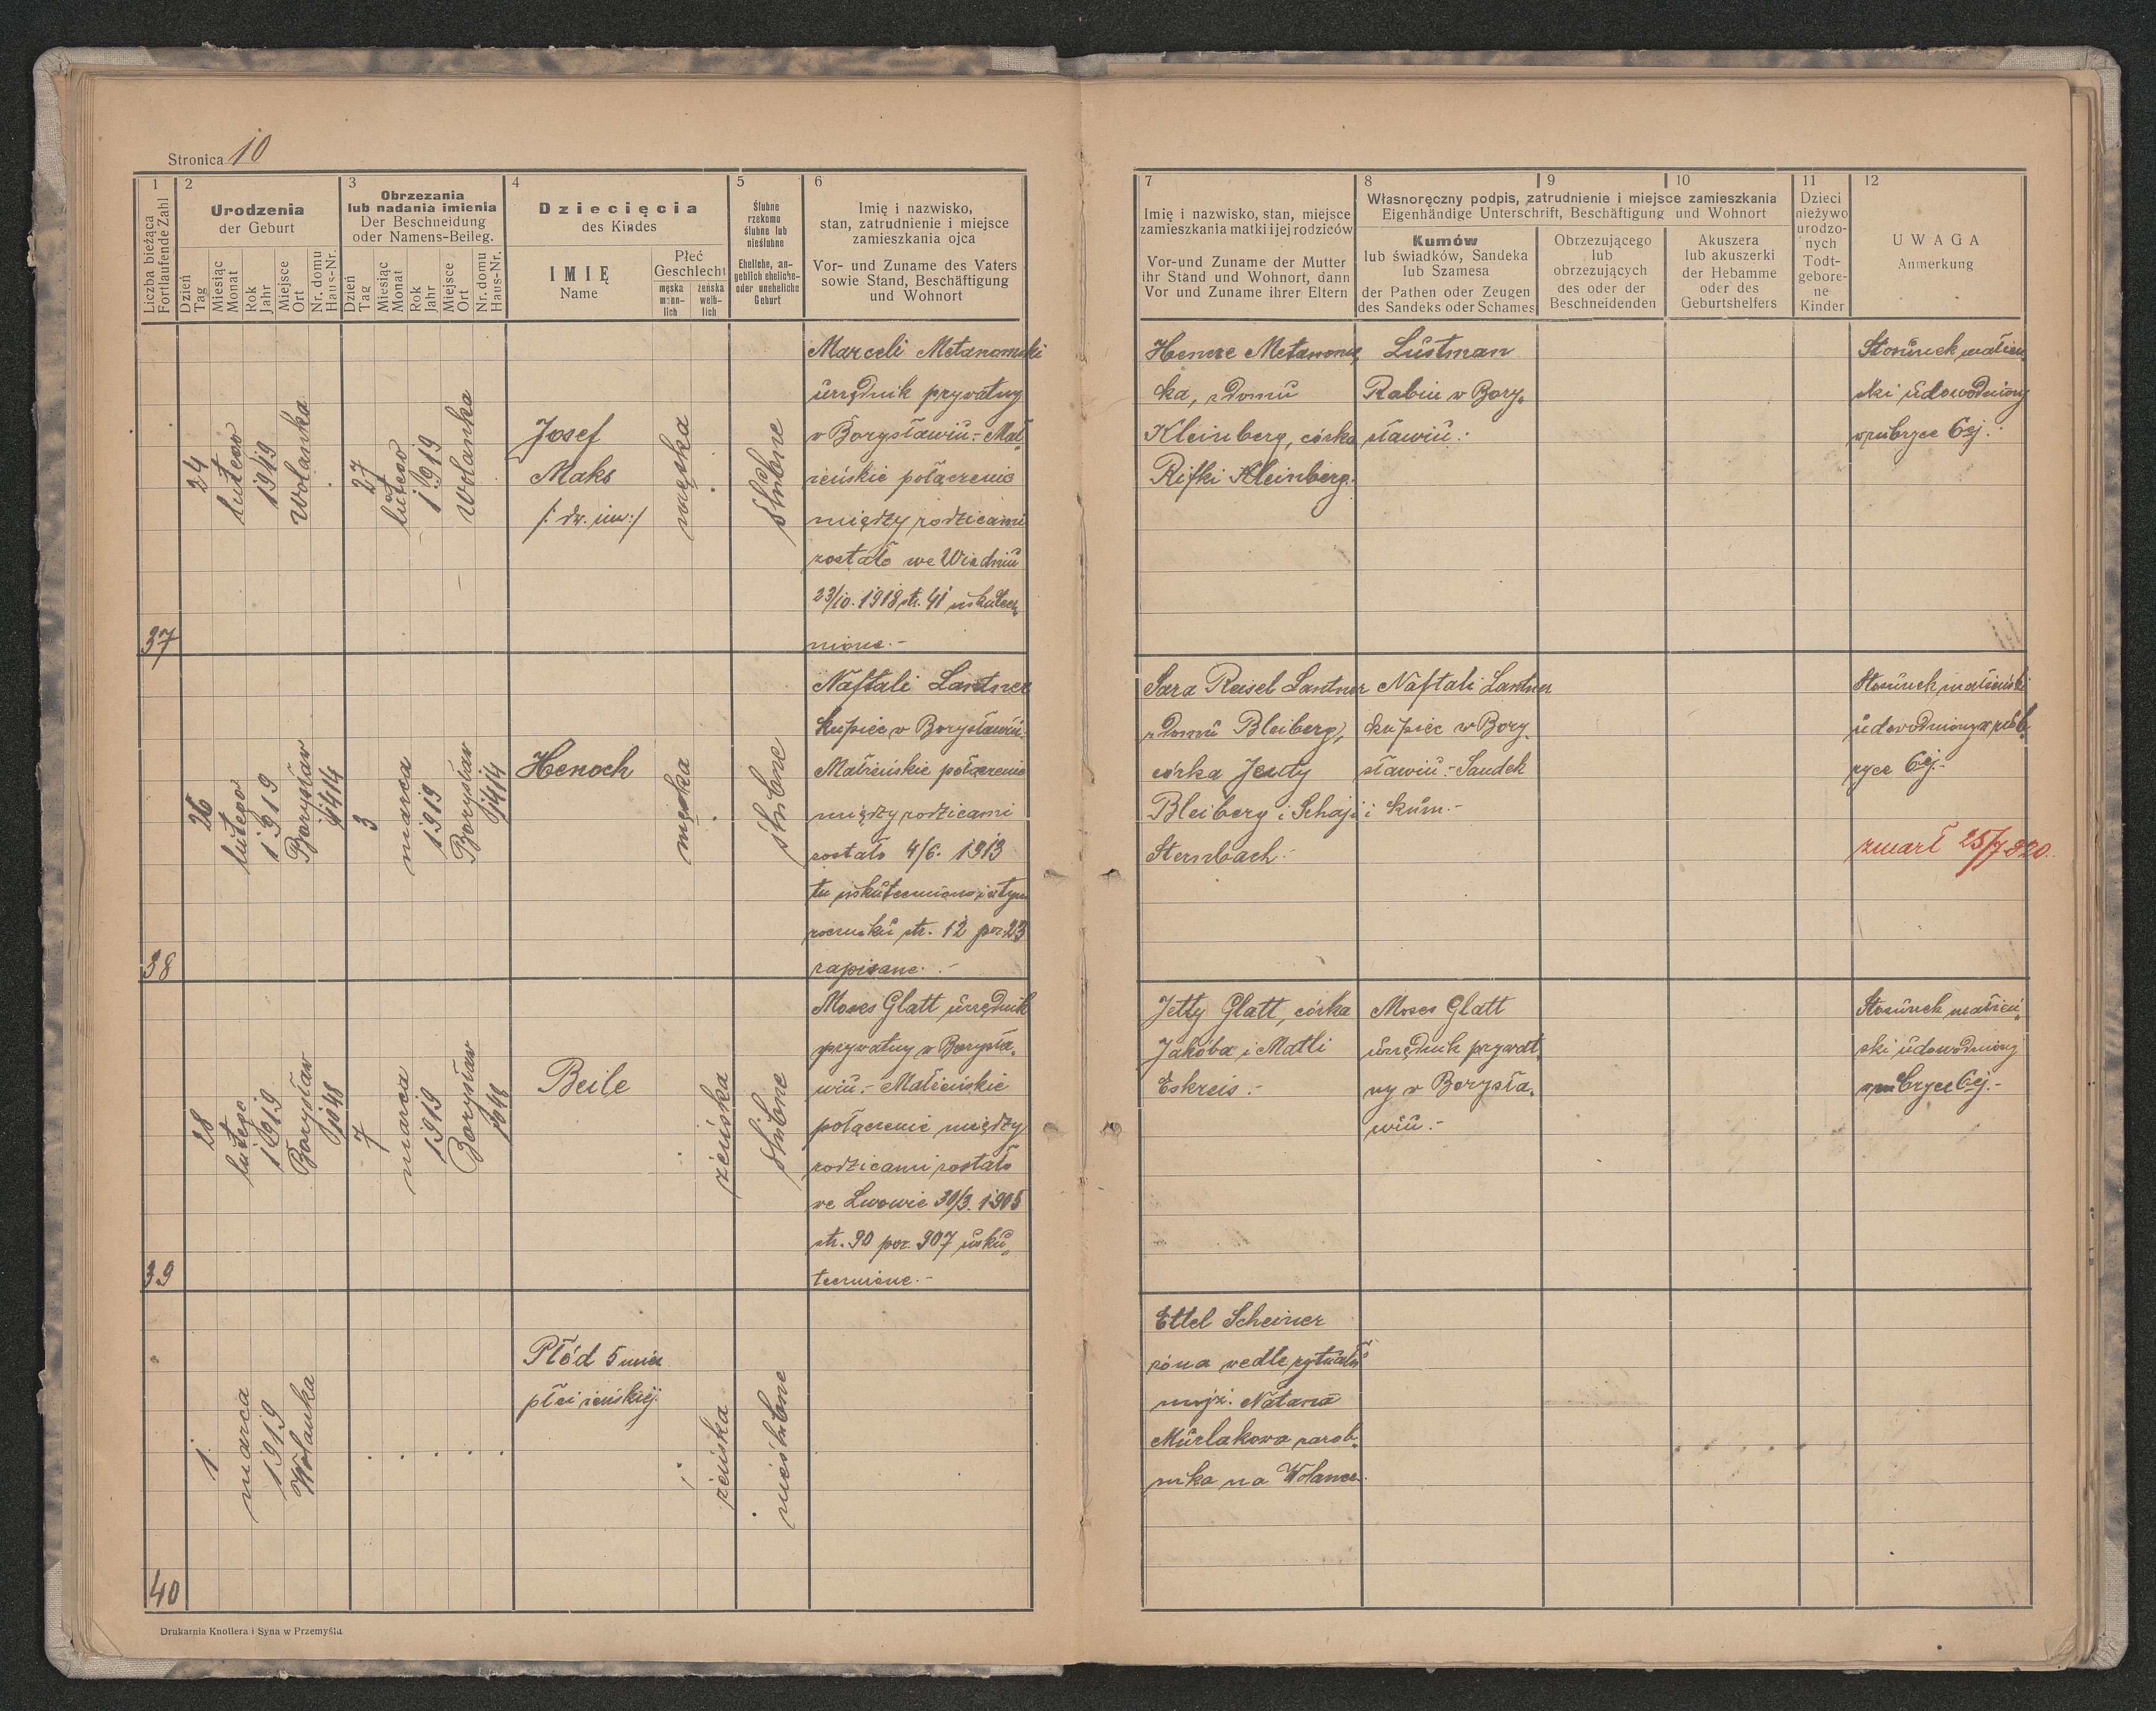 Stronica 10
1
Liczba bieżąca
Fortlaufende Zahl
2
Urodzenia
der Geburt
Dzień
Tag
Miesiąc
Monat
Rok
Jahr
Miejsce
Ort
Nr. domu
Haus-Nr.
3
Obrzezania
lub nadania imienia
Der Beschneidung
oder Namens-Beileg.
Dzień
Tag
Miesiąc
Monat
Rok
Jahr
Miejsce
Ort
Nr. domu
Haus-Nr.
4
Dziecięcia
des Kindes
IMIĘ
Name
Płeć
Geschlecht
męska
männ-
lich
żeńska
weib-
lich
5
Ślubne
rzekomo
ślubne lub
nieślubne
Eheliche, an-
geblich eheliche-
oder uneheliche
Geburt
6
Imię i nazwisko,
stan, zatrudnienie i miejsce
zamieszkania ojca
Vor- und Zuname des Vaters
sowie Stand, Beschäftigung
und Wohnort
7
Imię i nazwisko, stan, miejsce
zamieszkania matki i jej rodziców
Vor-und Zuname der Mutter
ihr Stand und Wohnort, dann
Vor und Zuname ihrer Eltern
8
9
10
Własnoręczny podpis, zatrudnienie i miejsce zamieszkania
Eigenhändige Unterschrift, Beschäftigung und Wohnort
Kumów
lub świadków, Sandeka
lub Szamesa
der Pathen oder Zeugen
des Sandeks oder Schames
Obrzezującego
lub
obrzezujących
des oder der
Beschneidenden
Akuszera
lub akuszerki
der Hebamme
oder des
Geburtshelfers
11
Dzieci
nieżywo
urodzo-
nych
Todt-
gebore-
ne
Kinder
12
UWAGA
Anmerkung
37
24
lutego
1919
Wolanka
27
lutego
1919
Wolanka
Josef
Maks
/: dw. im :/
męska
ślubne
Marceli
urzędnik prywatny
w Borysławiu.- Mał
żeńskie połączenie
między rodzicami
zostało we Wiedniu
23/10. 1918 str. 41 uskutecz
nione.-
ka, z domu
Kleinberg, córka
Rifki Kleinberg.
Lustman
Rabin w Bory-
sławiu.
Stosunek małżeń
ski udowodniony
w rubryce 6ej.-
38
26
lutego
1919
Borysław
1414
3
marca
1919
Borysław
1414
Henoch
męska
ślubne
Naftali Lantner
kupiec w Borysławiu.
Małżeńskie połączenie
między rodzicami
zostało 4/6. 1913
tu uskutecznione i w tym
roczniku str. 12 poz. 23
zapisane. -
Sara Reisel Lantner
z domu Bleiberg,
córka Jenty
Bleiberg i Schaji
Sternbach.-
Naftali Lantner
kupiec w Bory-
sławiu.- Sandek
i kum.-
Stosunek małżeński
udowodniony w rub
ryce 6ej.-
zmarł 25/7 920.
39
28
lutego
1919
Borysław
1048
7
marca
1919
Borysław
1048
Beile
żeńska
ślubne
Moses Glatt urzędnik
prywatny w Borysła-
wiu.- Małżeńskie
połączenie między
rodzicami zostało
we Lwowie 30/3. 1905
str. 90 poz. 307 usku-
tecznione.-
Jetty Glatt, córka
Jakóba i Matli
Eskreis.-
Moses Glatt
urzędnik prywat
ny w Borysła-
wiu.-
Stosunek małżeń-
ski udowodniony
w rubryce 6ej.-
40
1
marca
1919
Wolanka
Płód 5 mies
płci żeńskiej.
żeńska
nieślubne
Ettel Scheiner
żona wedle rytuału
mojż. Natana
Murlakowa zarob-
nika na Wolance.
Drukarnia Knollera i Syna w Przemyślu